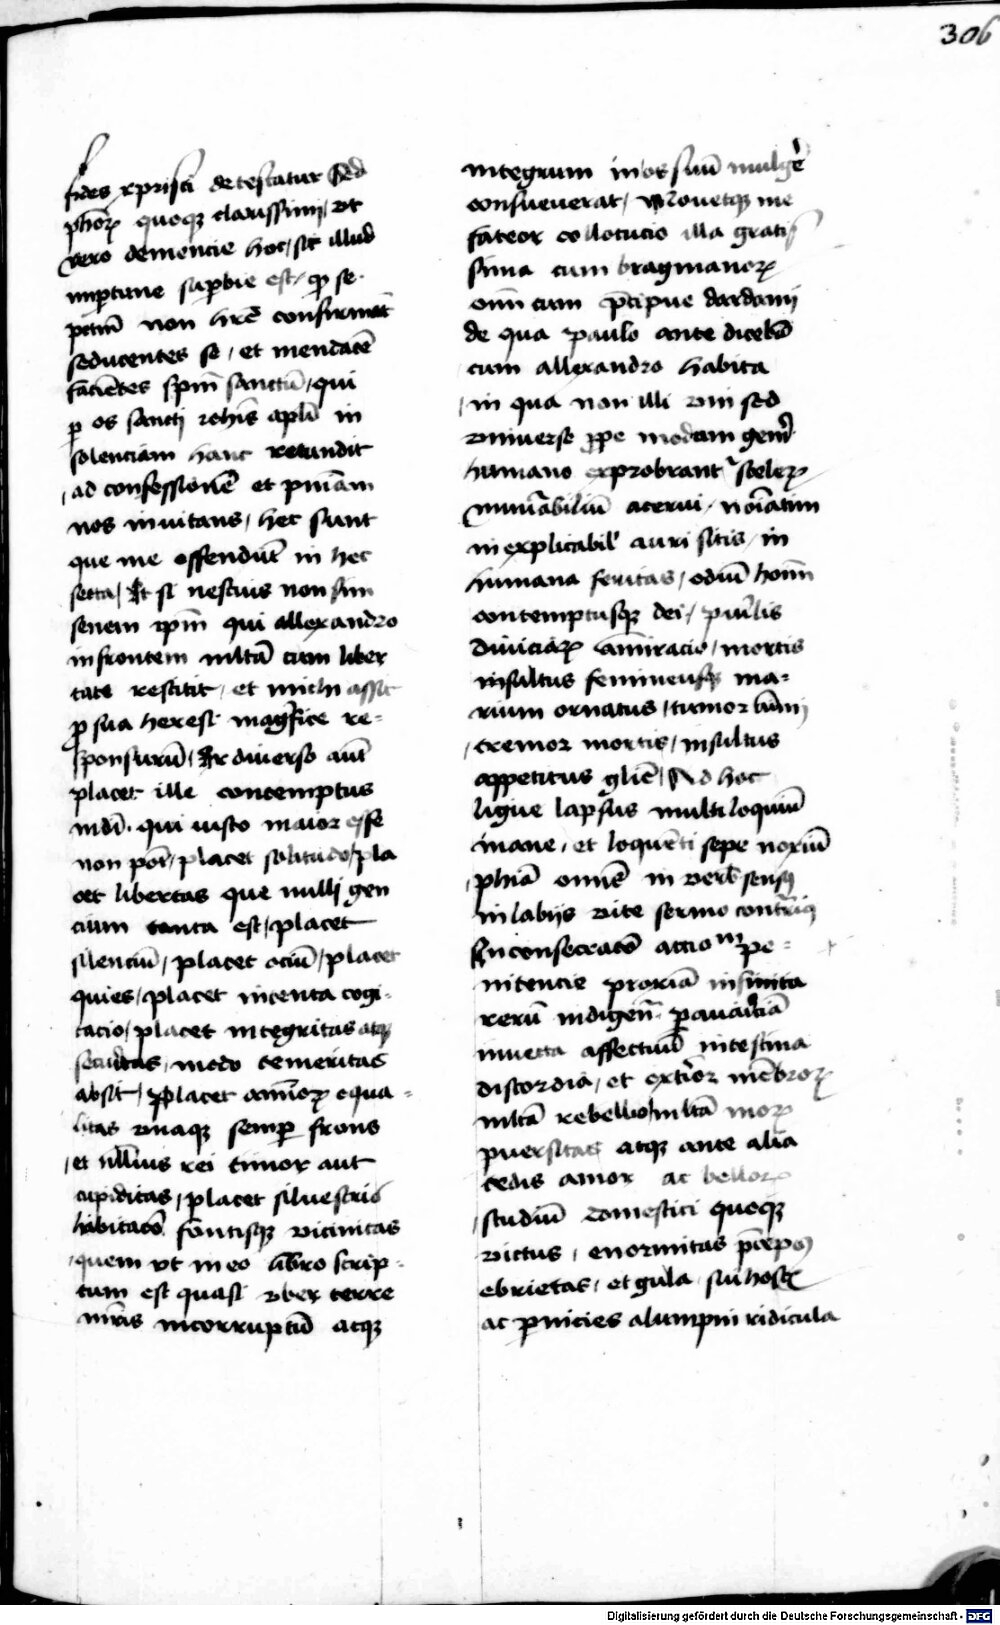 306
fides xpristi detestatur Sed
phoꝝ quoqꝫ clarissimi / vt
vero demencie hoc / sit illud
importune supbie est / qꝫ se
pctm̄ non hr̄e confirmāt
seducentes se / et mendacē
faciētes spm̄ sanctū / qui
ꝑ os sancti iohīs apl̄i in
solenciam hanc retundit
/ ad confessionē et pniam
nos inuitans / hec sunt
que me offendūt in hec
secta / Et si nescius non sim
senem ipm̄ qui allexandro
infrontem mltā cum liber
tate restitit / et michi assit
ꝓ sua heresi magnifice re-
sponsurū / Ex diuerso aut̄
placet ille contemptus
mdi · qui iusto maior esse
non pot̄ / placet solitudo / pla
cet libertas que nulli gen
cium tanta est / placet
silenciū / placet ociū / placet
quies / placet intenta cogi-
tacio / placet integritas atqꝫ
securitas / modo temeritas
absit / Placet aīmoꝝ equa-
litas vnaqꝫ semꝑ frons
/ et nullius rei timor aut
cupiditas / placet siluestris
habitacō fontisqꝫ vicinitas
/ quem vt in eo libro scrip-
tum est quasi vber terre
mr̄is incorruptū atqꝫ
integrum in os suū mulgē
consueuerat / Mouetqꝫ me
fateor collocucio illa gratis
sima cum bragmanoꝝ
om̄i cum p̄cipue dardani
de qua paulo ante dicebā
cum allexandro habita
/ in qua non illi vni sed
vniuerse ꝓpe modum gen̄i
humano exprobrant² sceleꝝ
inumābiliū acerui / noīatim
inexplicabil' auri sitis / in
humana feritas / odiū hoīm
contemptusqꝫ dei / puīlis
diuiciaꝝ amīracio / mortis
insultus femineusqꝫ ma-
rium ornatus / tumor
/ tremor mortis / insultus
appetitus glīe / Ad hoc
ligue lapsus multiloquiū
inane / et loquēti sepe noxiū
/ phiā omnē in verb' sensꝫ
in labijs vite sermo contrīus
Inconsecratō actio pe-
nitencie infinita
rerū indigen̄ ꝑ auariciā
inuecta affectuū intestina
discordia / et exterior mēbroꝝ
mltā rebellio / mltā moꝝ
puersitas atqꝫ ante alia
cedis amor ac belloꝝ
/ studiū domestici quoqꝫ
victus / enormitas
ebrietas / et gula / sui hostꝭ
ac ꝑnicies alumpni ridicula
Digitalisierung gefördert durch die Deutsche Forschungsgemeinschaft - DFG